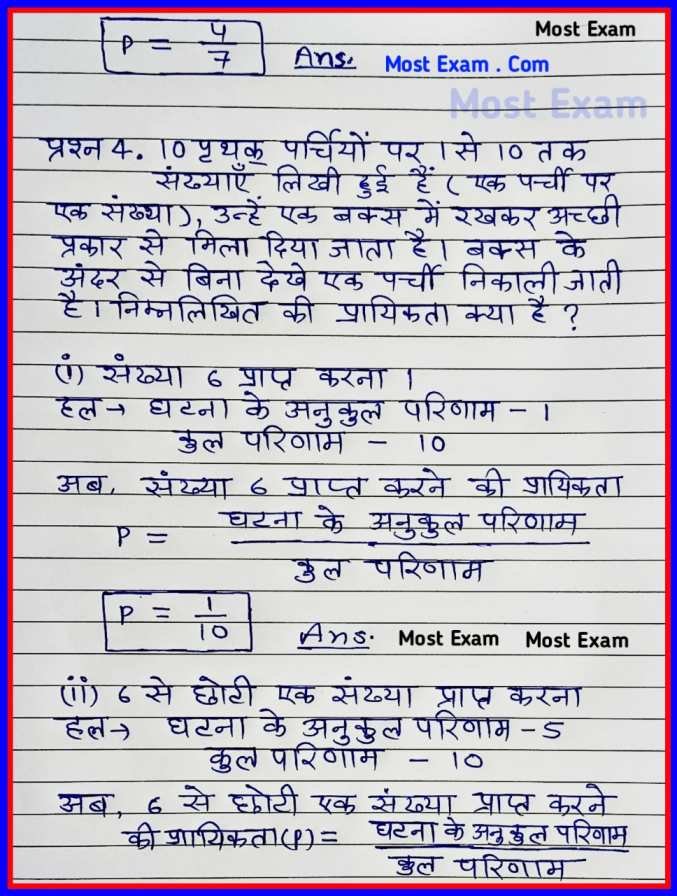 Most Exam
P = 4/7 Ans. Most Exam . Com
Most Exam
प्रश्न 4. 10 पृथक् पर्चियों पर 1 से 10 तक
संख्याएँ लिखी हुई हैं ( एक पर्ची पर
एक संख्या ), उन्हें एक बक्स में रखकर अच्छी
प्रकार से मिला दिया जाता है। बक्स के
अंदर से बिना देखे एक पर्ची निकाली जाती
है। निम्नलिखित की प्रायिकता क्या है ?
(i) संख्या 6 प्राप्त करना।
हल → घटना के अनुकुल परिणाम - 1
कुल परिणाम - 10
अब, संख्या 6 प्राप्त करने की प्रायिकता
P = घटना के अनुकुल परिणाम
कुल परिणाम
P = 1/10 Ans. Most Exam Most Exam
(ii) 6 से छोटी एक संख्या प्राप्त करना
हल → घटना के अनुकुल परिणाम - 5
कुल परिणाम - 10
अब, 6 से छोटी एक संख्या प्राप्त करने
की प्रायिकता (P) = घटना के अनुकुल परिणाम
कुल परिणाम